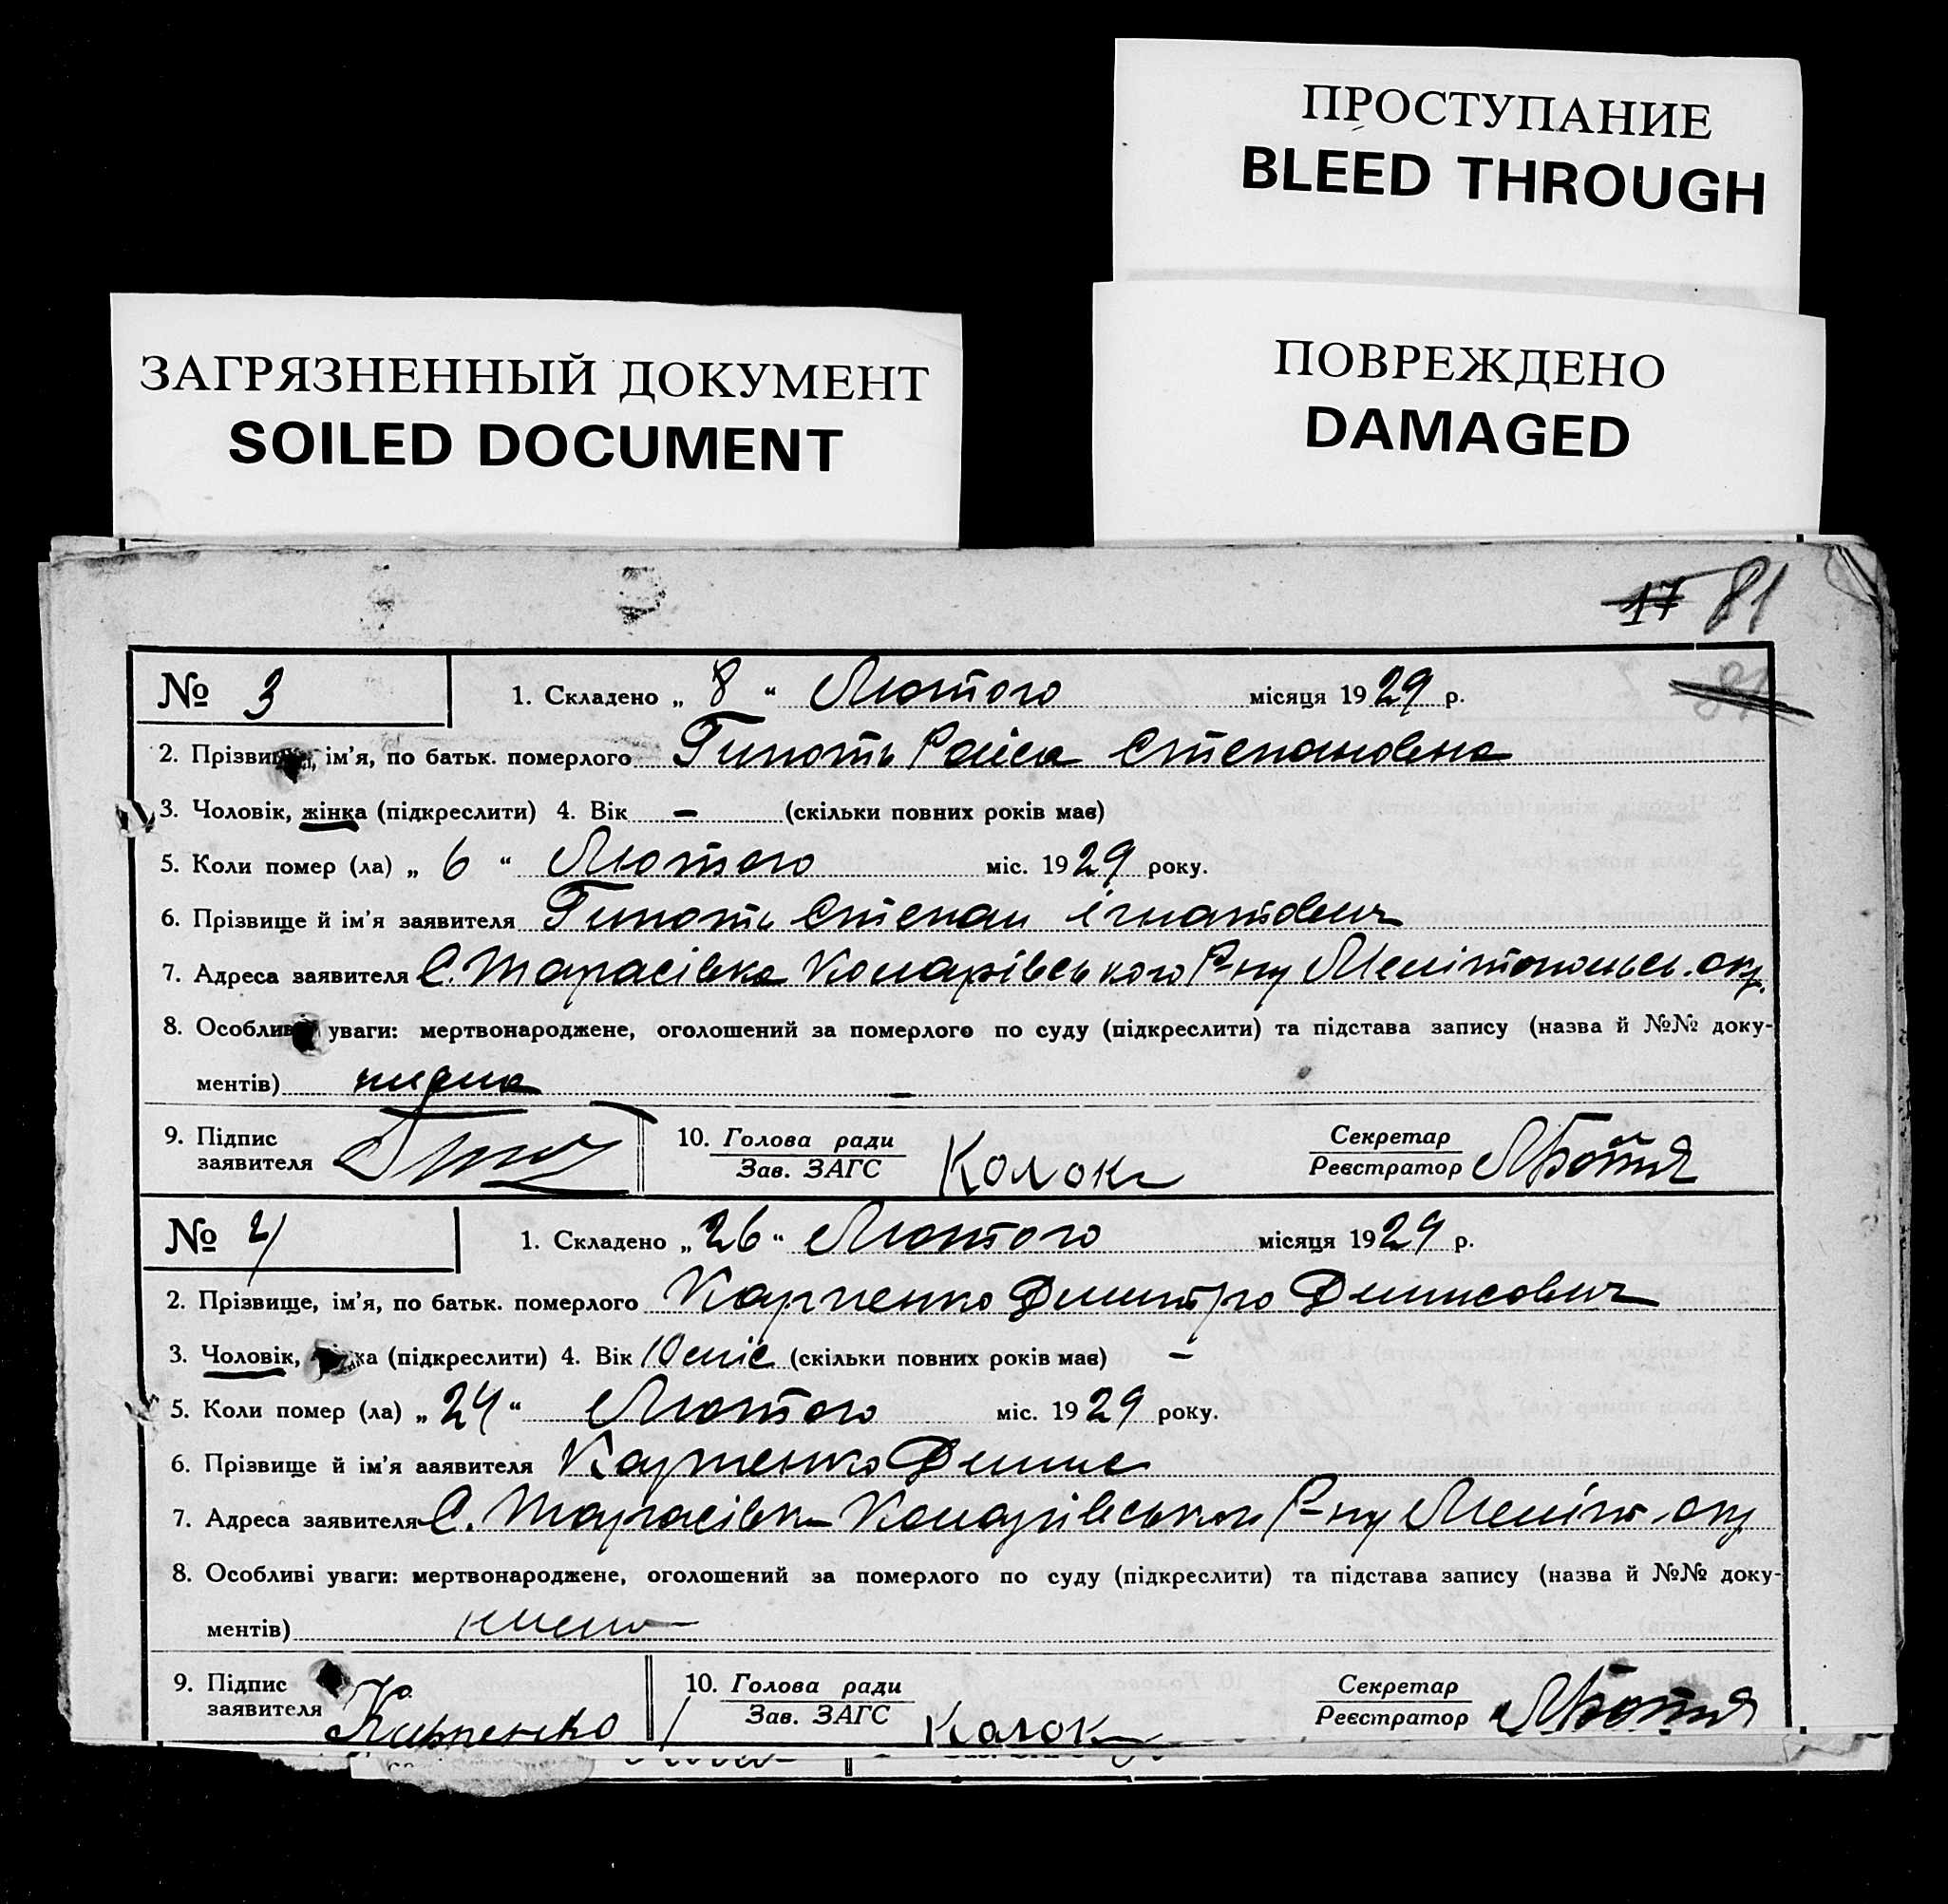 ПРОСТУПАНИЕ
BLEED THROUGH
ЗАГРЯЗНЕННЫЙ ДОКУМЕНТ
SOILED DOCUMENT
ПОВРЕЖДЕНО
DAMAGED
17 81
№ 3 1. Складено „ 8 “ Лютого місяця 1929 р.
81
2. Прізвище, ім'я, по батьк. померлого Раїса Степановна
3. Чоловік, жінка (підкреслити) 4. Вік — (скільки повних років має)
5. Коли помер (ла) „ 6 “ Лютого міс. 1929 року.
6. Прізвище й ім'я заявителя Степан Ігнатович
7. Адреса заявителя С. Тарасівка Комарівського Р-ну Мелітопольськ. окр.
8. Особливі уваги: мертвонароджене, оголошений за померлого по суду (підкреслити) та підстава запису (назва й №№ доку-
ментів) —
9. Підпис
заявителя
10. Голова ради
Зав. ЗАГС
Колок
Секретар
Реєстратор
№ 4 1. Складено „ 26 “ Лютого місяця 1929 р.
2. Прізвище, ім'я, по батьк. померлого Карпенко Дмитро Денисович
3. Чоловік, жінка (підкреслити) 4. Вік 10 (скільки повних років має) —
5. Коли помер (ла) „ 24 “ Лютого міс. 1929 року.
6. Прізвище й ім'я заявителя Карпенко Денис
7. Адреса заявителя С. Тарасівка Комарівського Р-ну Меліт. окр
8. Особливі уваги: мертвонароджене, оголошений за померлого по суду (підкреслити) та підстава запису (назва й №№ доку-
ментів)
9. Підпис
заявителя
Карпенко
10. Голова ради
Зав. ЗАГС
Колок
Секретар
Реєстратор